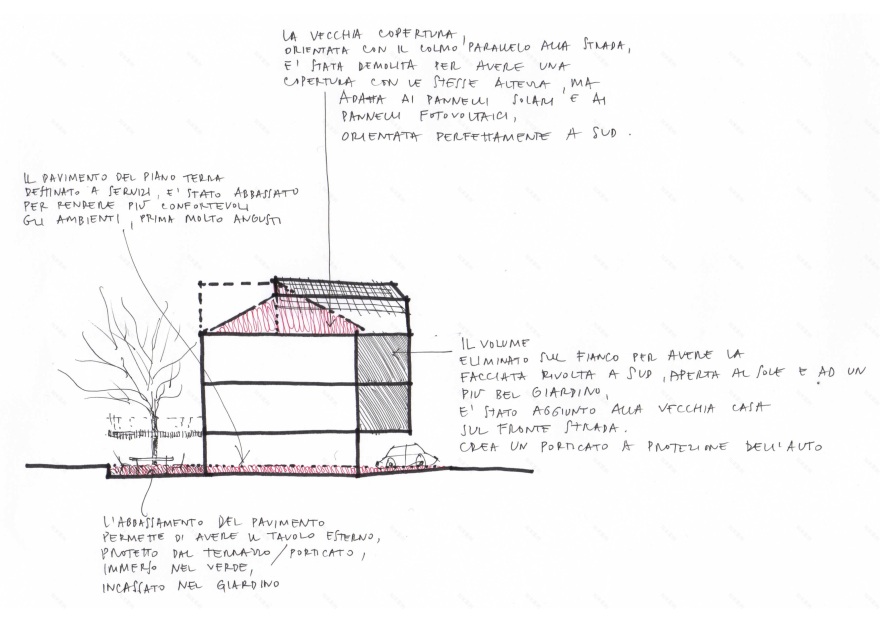 LA VECCHIA COPERTURA,
ORIENTATA CON IL COLMO PARALLELO ALLA STRADA,
E' STATA DEMOLITA PER AVERE UNA
COPERTURA CON LE STESSE ALTEZZA, MA
ADATTA AI PANNELLI SOLARI E AI
PANNELLI FOTOVOLTAICI,
ORIENTATA PERFETTAMENTE A SUD.
IL PAVIMENTO DEL PIANO TERRA
DESTINATO A SERVIZI, E' STATO ABBASSATO
PER RENDERE PIÙ CONFORTEVOLI
GLI AMBIENTI, PRIMA MOLTO ANGUSTI
IL VOLUME
ELIMINATO SUL FIANCO PER AVERE LA
FACCIATA RIVOLTA A SUD, APERTA AL SOLE E AD UN
PIU' BEL GIARDINO,
E' STATO AGGIUNTO ALLA VECCHIA CASA
SUL FRONTE STRADA.
CREA UN PORTICATO A PROTEZIONE DELL'AUTO
L'ABBASSAMENTO DEL PAVIMENTO
PERMETTE DI AVERE IL TAVOLO ESTERNO,
PROTETTO DAL TERRAZZO/PORTICATO,
IMMERSO NEL VERDE,
INCASSATO NEL GIARDINO